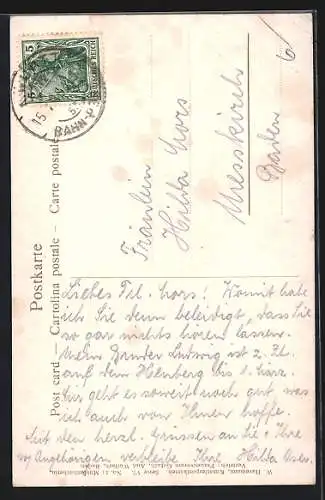 5
DEUTSCHES REICH
15
BAHN-P
Postkarte
Post card – Cartolina postale – Carte postale
Fräulein
Hilda Mors
Messkirch
Baden
Liebes Frl. Mors! Womit habe
ich Sie denn beleidigt, dass Sie
so gar nichts hören lassen.
Mein Bruder Ludwig ist z. Zt.
auf dem Heuberg bis 1. März.
Mir geht es soweit noch gut was
ich auch von Ihnen hoffe.
Mit den herzl. Grüssen an Sie & Ihre
w. Angehörigen verbleibe Ihre Hilda
W. Hausmann, Serie VI, No.
Vertrieb: